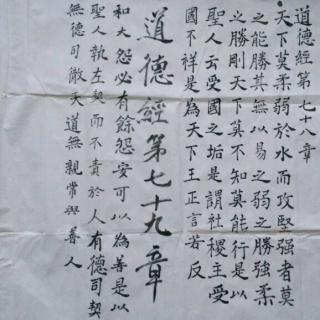 道德經第七十八章
天下莫柔弱於水而攻堅强者莫
之能勝其無以易之弱之勝強柔
之勝剛天下莫不知莫能行是以
聖人云受國之垢是謂社稷主受
國不祥是為天下王正言若反
道德經第七十九章
和大怨必有餘怨安可以為善是以
聖人執左契而不責於人有德司契
無德司徹天道無親常與善人